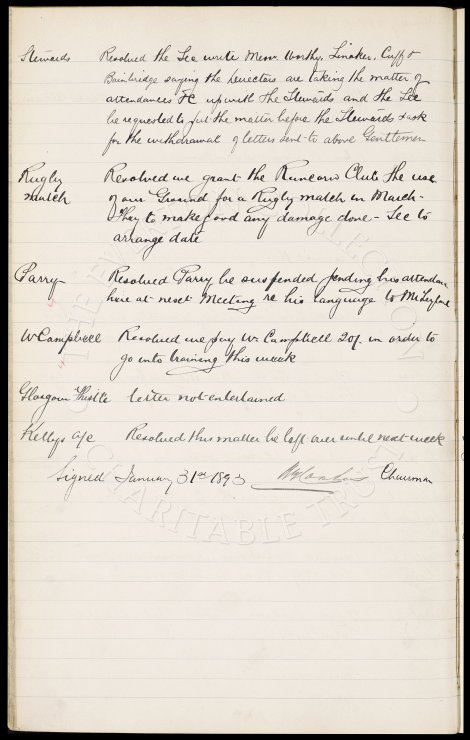 Stewards Resolved the Sec write Messrs Worthy, Linaker, Cuff &
Bainbridge saying the Directors are taking the matter of
attendances &c up with the Stewards and the Sec
be requested to put the matter before the Stewards & ask
for the withdrawal of letters sent to above Gentlemen
Rugby match Resolved we grant the Runcorn Club the use
of our Ground for a Rugby match in March -
They to make good any damage done - Sec to
arrange date
Parry Resolved Parry be suspended pending his attendance
here at next Meeting re his language to Mr Leyland
W Campbell Resolved we pay W. Campbell 20/- in order to
go into training this week
Glasgow Thistle letter not entertained
Kellys a/c Resolved this matter be left over until next week
Signed January 31st 1893 Chairman
THE EVERTON COLLECTION CHARITABLE TRUST